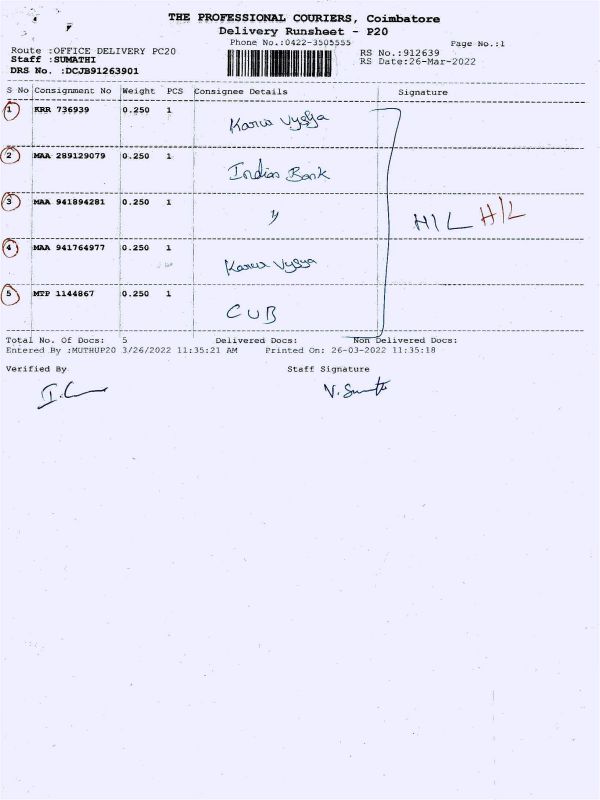 THE PROFESSIONAL COURIERS, Coimbatore
Delivery Runsheet - P20
Phone No.:0422-3505555
Page No.:1
Route :OFFICE DELIVERY PC20
RS No.:912639
Staff :SUMATHI
RS Date:26-Mar-2022
DRS No. :DCJB91263901
S No Consignment No Weight PCS Consignee Details Signature
1 KRR 736939 0.250 1 Karur Vysya
2 MAA 289129079 0.250 1 Indian Bank
3 MAA 941894281 0.250 1 〃 H/L H/L
4 MAA 941764977 0.250 1 Karur Vysya
5 MTP 1144867 0.250 1 CUB
Total No. Of Docs: 5 Delivered Docs: Non Delivered Docs:
Entered By :MUTHUP20 3/26/2022 11:35:21 AM Printed On: 26-03-2022 11:35:18
Verified By Staff Signature
V. Sumathi